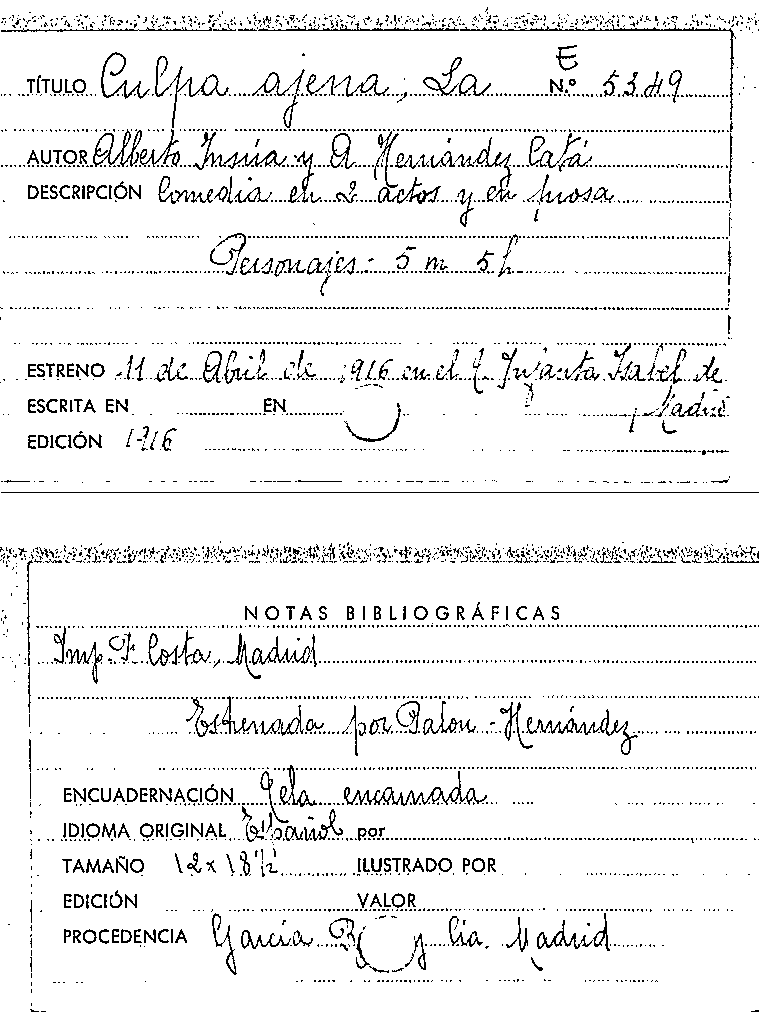 TÍTULO Culpa ajena, La E N.º 5349
AUTOR Alberto Insúa y A Hernández Catá
DESCRIPCIÓN Comedia en 2 actos y en prosa
Personajes: 5 m 5 h
ESTRENO 11 de Abril de 1916 en el T. Infanta Isabel de
ESCRITA EN EN Madrid
EDICIÓN 1916
NOTAS BIBLIOGRÁFICAS
Imp. F. Costa, Madrid
Estrenada por Palou - Hernández
ENCUADERNACIÓN Tela encarnada
IDIOMA ORIGINAL Español por
TAMAÑO 12 x 18½ ILUSTRADO POR
EDICIÓN VALOR
PROCEDENCIA García y Cía. Madrid